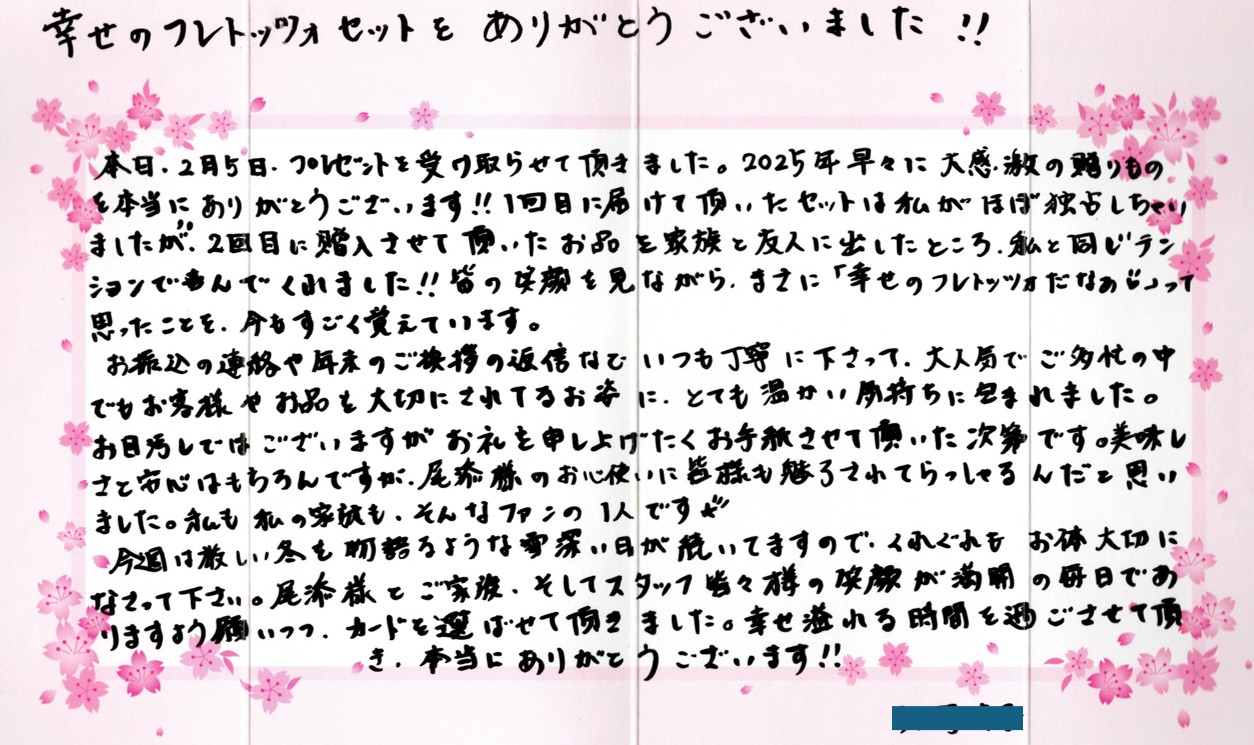 幸せのフレトッツォセットを ありがとうございました!!
本日、2月5日、プレゼントを受け取らせて頂きました。2025年早々に大感激の贈りもの
を本当にありがとうございます!! 1回目に届けて頂いたセットは私がほぼ独占しちゃい
ましたが、2回目に贈入させて頂いたお品を家族と友人に出したところ、私と同じテン
ションで喜んでくれました!! 皆の笑顔を見ながら、まさに「幸せのフレトッツォだなぁ」って
思ったことを、今もすごく覚えています。
お振込の連絡や年末のご挨拶の返信など いつも丁寧に下さって、大人気でご多忙の中
でもお客様やお品を大切にされてるお姿に、とても温かい気持ちに包まれました。
お目汚しではございますがお礼を申し上げたくお手紙させて頂いた次第です。美味し
さと安心はもちろんですが、尾添様のお心使いに皆様も魅了されてらっしゃるんだと思い
ました。私も私の家族も、そんなファンの1人です
今週は厳しい冬を物語るような雪深い日が続いてますので、くれぐれも お体大切に
なさって下さい。尾添様とご家族、そしてスタッフ皆々様の笑顔が満開の毎日であ
りますよう願いつつ、カードを選ばせて頂きました。幸せ溢れる時間を過ごさせて頂
き、本当にありがとうございます!!